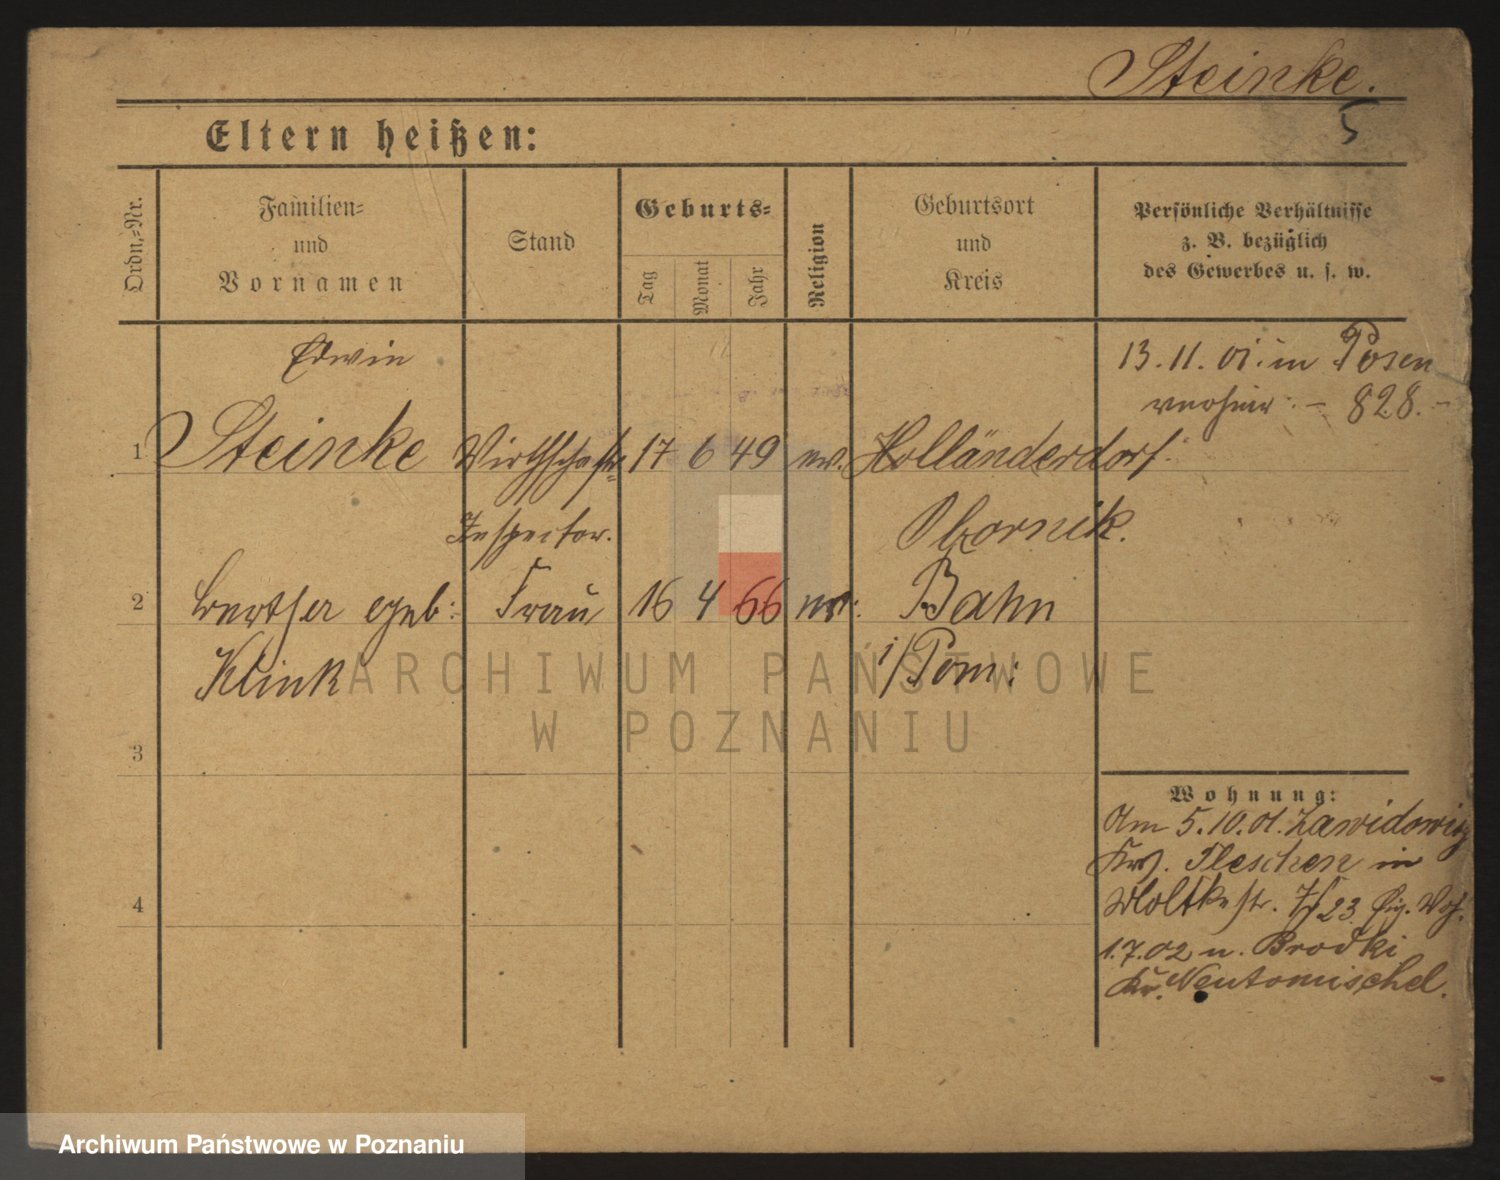 Steinke.
5
Eltern heißen:
Ordn.-Nr.
Familien-
und
Vornamen
Stand
Geburts-
Tag
Monat
Jahr
Religion
Geburtsort
und
Kreis
Persönliche Verhältnisse
z. B. bezüglich
des Gewerbes u. s. w.
Edwin
13. 11. 01. in Posen
828.
1 Steinke Wirthschafts 17 6 49 ev. Holländerdorf
Inspector. Obornik.
2 Bertha geb: Frau 16 4 66 ev: Bahn
Klink i/Pom:
3
Wohnung:
Am 5.10.01. Zawidowitz
Krs. Pleschen in
4
Moltkestr. 7/23
1.7.02 n. Brodki
Kr. Neutomischel.
ARCHIWUM PAŃSTWOWE
W POZNANIU
Archiwum Państwowe w Poznaniu